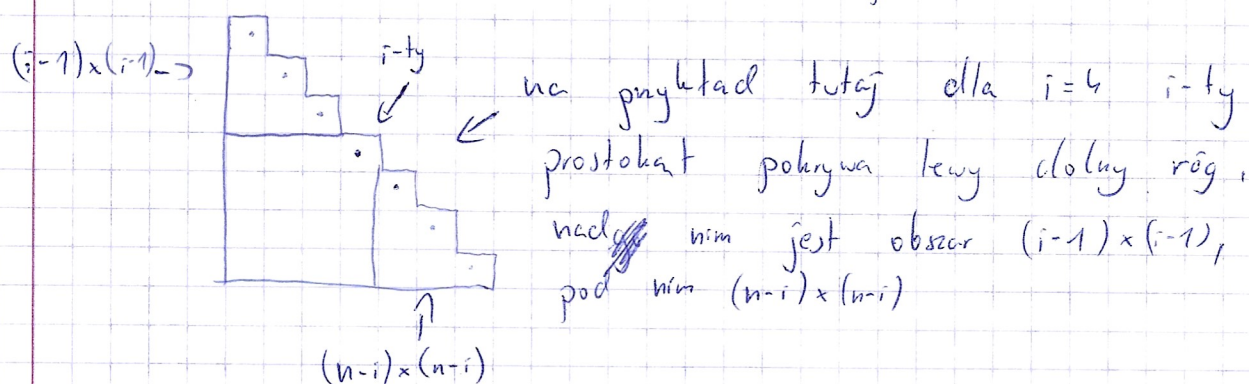 (i-1)×(i-1)->
i-ty
na przykład tutaj dla i=4 i-ty
prostokąt pokrywa lewy dolny róg,
nad nim jest obszar (i-1)×(i-1),
pod nim (n-i)×(n-i)
(n-i)×(n-i)